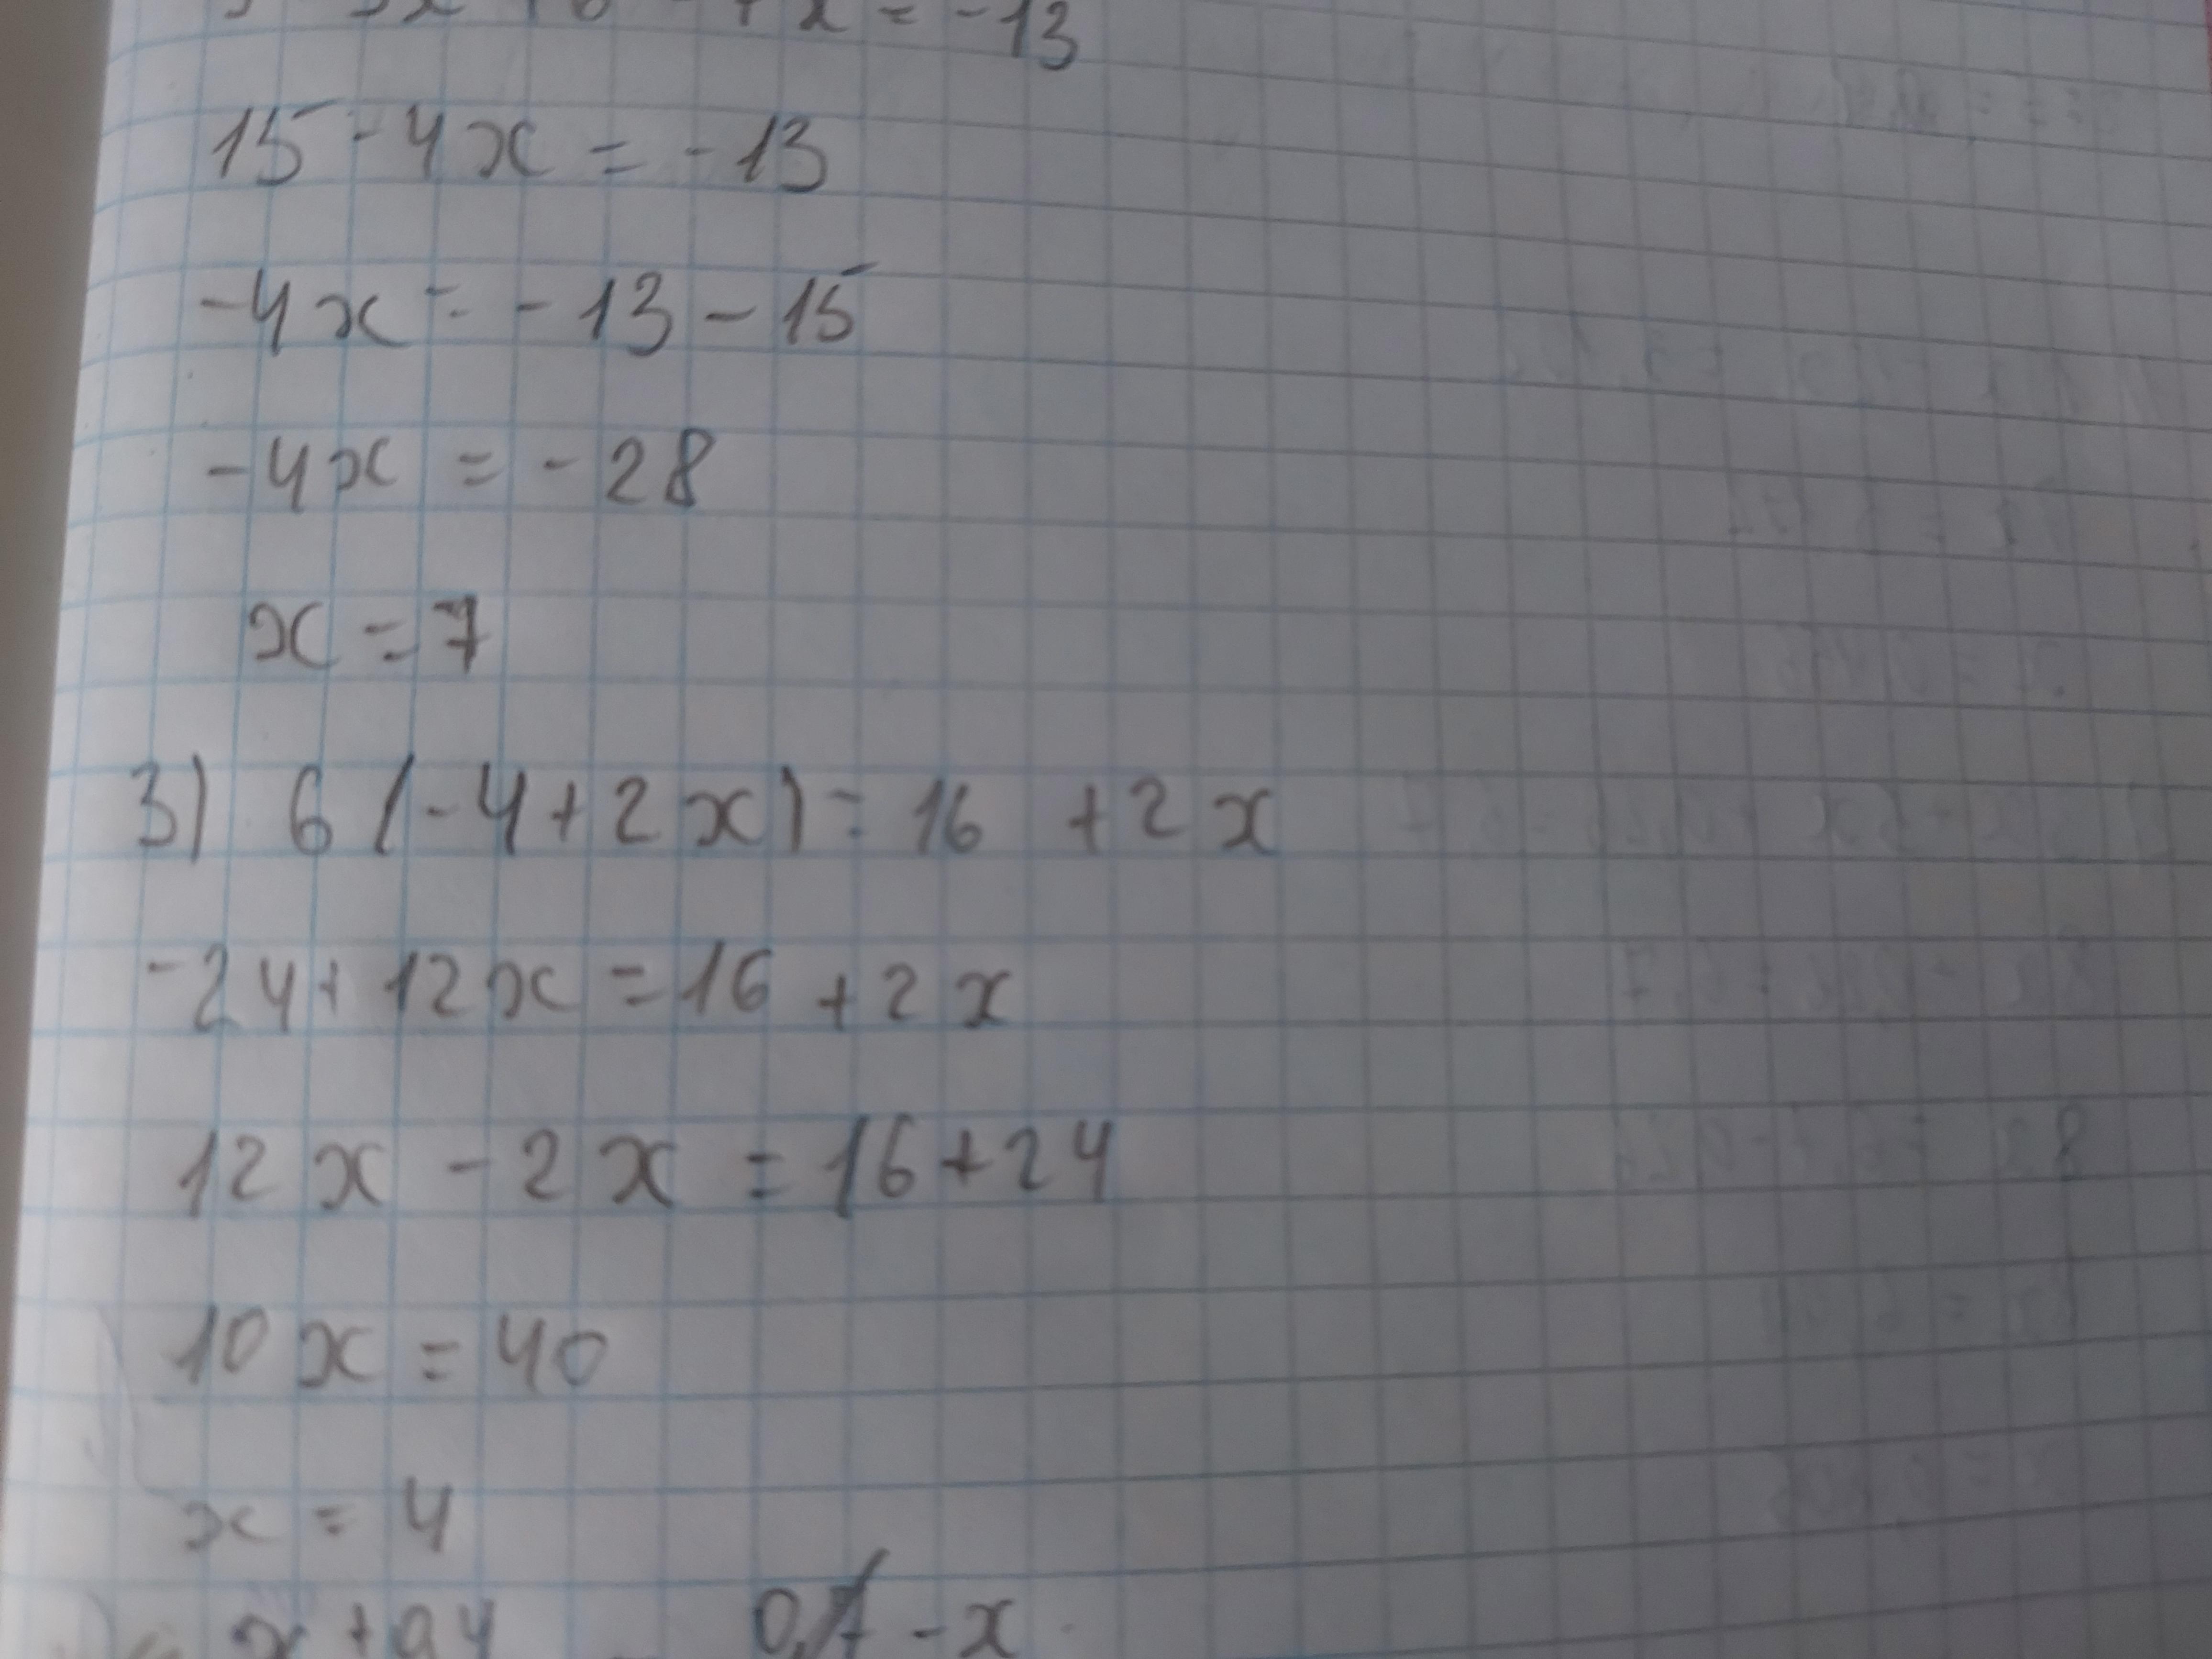 x = -13
15 - 4x = -13
-4x = -13 - 15
-4x = -28
x = 7
3) 6 (-4 + 2x) = 16 + 2x
-24 + 12x = 16 + 2x
12x - 2x = 16 + 24
10x = 40
x = 4
x + 0,4 - x